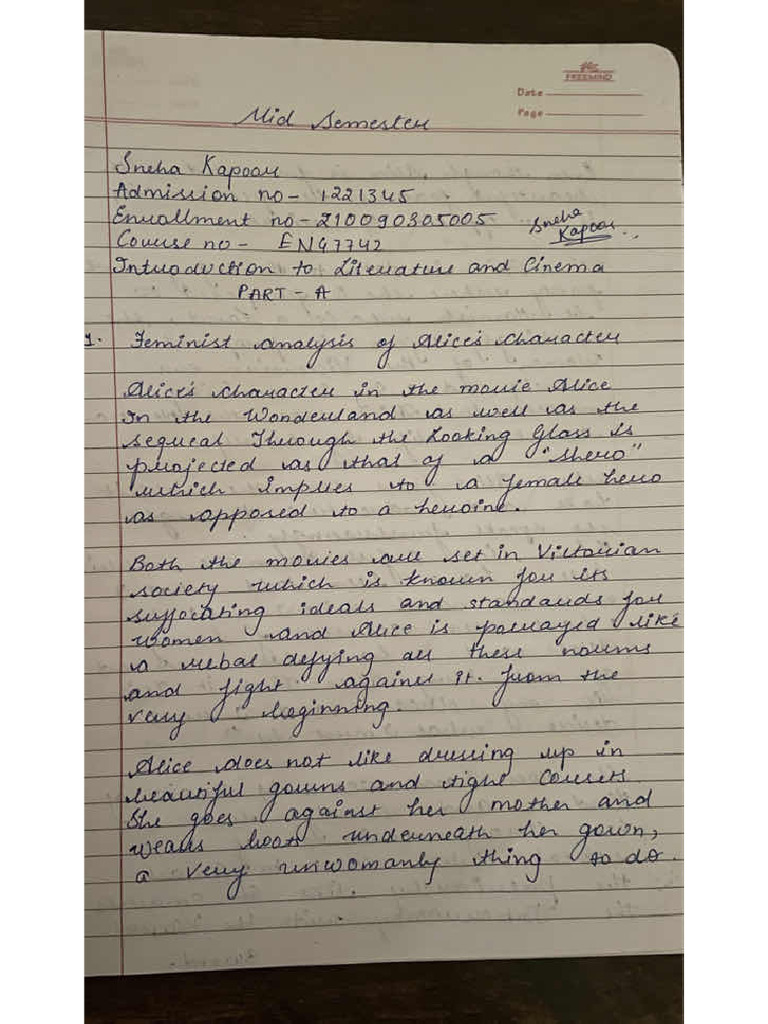 FREEMIND
Date
Page
Mid Semester
Sneha Kapoor
Admission no- 1221345
Enrollment no-210090305005
Sneha
Kapoor
Course no- ENG7742
Introduction to Literature and Cinema
PART-A
1. Feminist analysis of Alice's character
Alice's character in the movie Alice
In the Wonderland as well as the
sequeal Through the Looking Glass is
projected as that of a "shero"
which implies to a female hero
as opposed to a heroine.
Both the movies are set in Victorian
society which is known for its
suffocating ideals and standards for
women and Alice is portrayed like
a rebal defying all these norms
and fight against it from the
very beginning.
Alice does not like dressing up in
beautiful gowns and tight corsets.
She goes against her mother and
wears boots underneath her gown,
a very unwomanly thing to do.